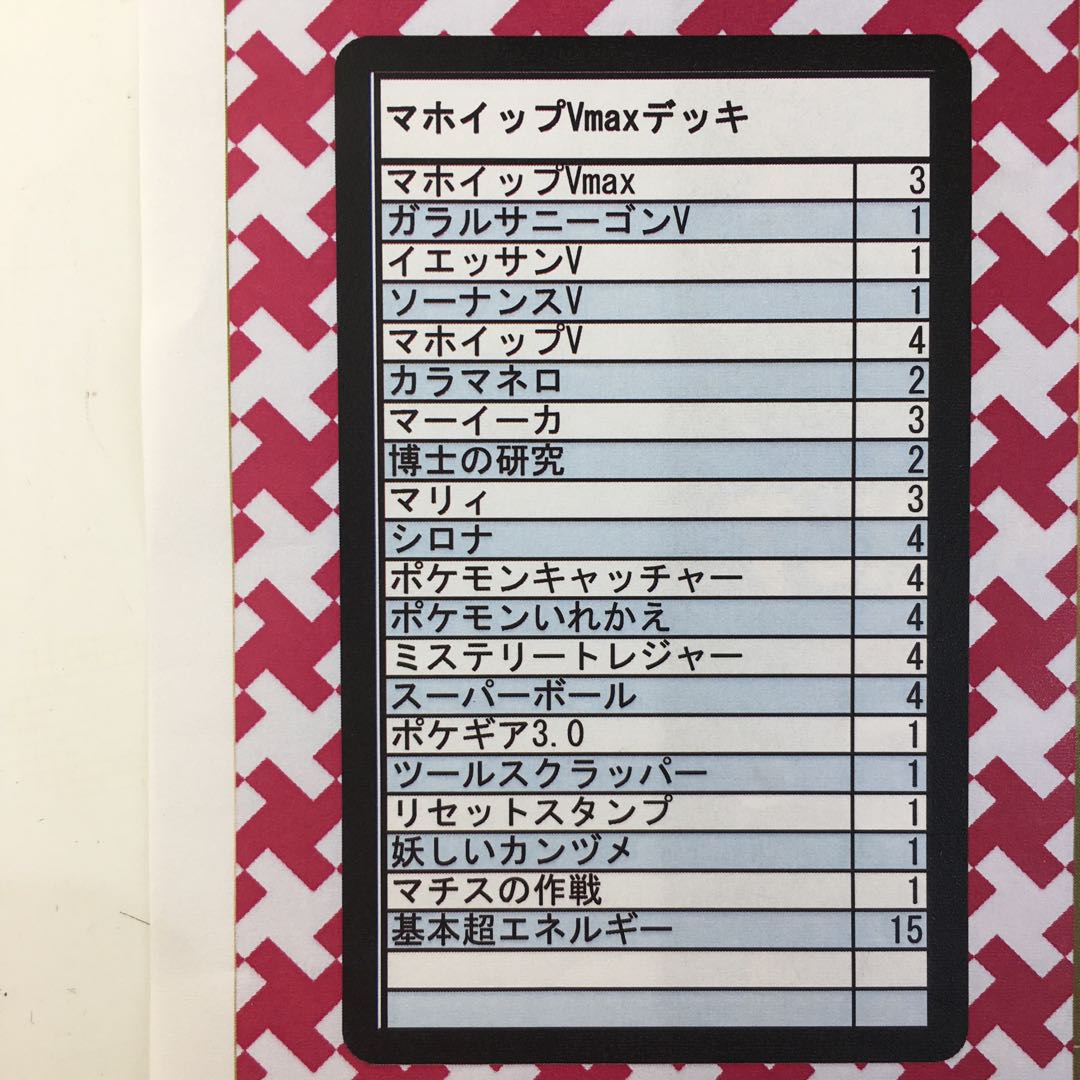 マホイップVmaxデッキ
マホイップVmax 3
ガラルサニーゴンV 1
イエッサンV 1
ソーナンスV 1
マホイップV 4
カラマネロ 2
マーイーカ 3
博士の研究 2
マリィ 3
シロナ 4
ポケモンキャッチャー 4
ポケモンいれかえ 4
ミステリートレジャー 4
スーパーボール 4
ポケギア3.0 1
ツールスクラッパー 1
リセットスタンプ 1
妖しいカンヅメ 1
マチスの作戦 1
基本超エネルギー 15